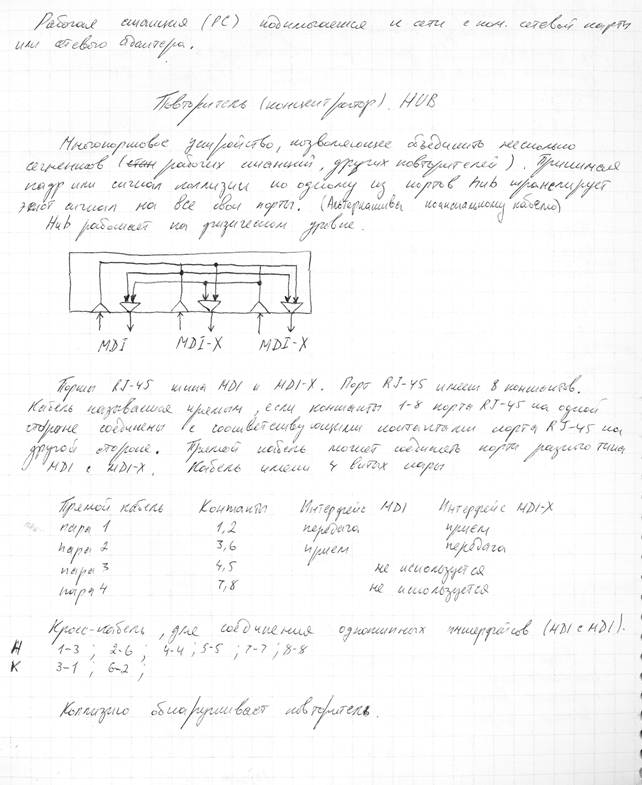 Рабочая станция (РС) подключается к сети с пом. сетевой карты
или сетевого адаптера.
Повторитель (концентратор). HUB
Многопортовое устройство, позволяющее объединить несколько
сегментов (рабочих станций, других повторителей). Принимая
кадр или сигнал коллизии по одному из портов Hub транслирует
этот сигнал на все свои порты. (Альтернатива коаксиальному кабелю)
Hub работает на физическом уровне.
MDI MDI-X MDI-X
Порты RJ-45 типа MDI и MDI-X. Порт RJ-45 имеет 8 контактов.
Кабель называется прямым, если контакты 1-8 порта RJ-45 на одной
стороне соединены с соответствующими контактами порта RJ-45 на
другой стороне. Прямой кабель может соединять порты разного типа
MDI с MDI-X. Кабель имеет 4 витых пары
Прямой кабель Контакты Интерфейс MDI Интерфейс MDI-X
пара 1 1,2 передача прием
пара 2 3,6 прием передача
пара 3 4,5 не используется
пара 4 7,8 не используется
Кросс-кабель, для соединения однотипных интерфейсов (MDI с MDI).
Н 1-3 ; 2-6 ; 4-4 ; 5-5 ; 7-7 ; 8-8
К 3-1 ; 6-2 ;
Коллизию обнаруживает повторитель.